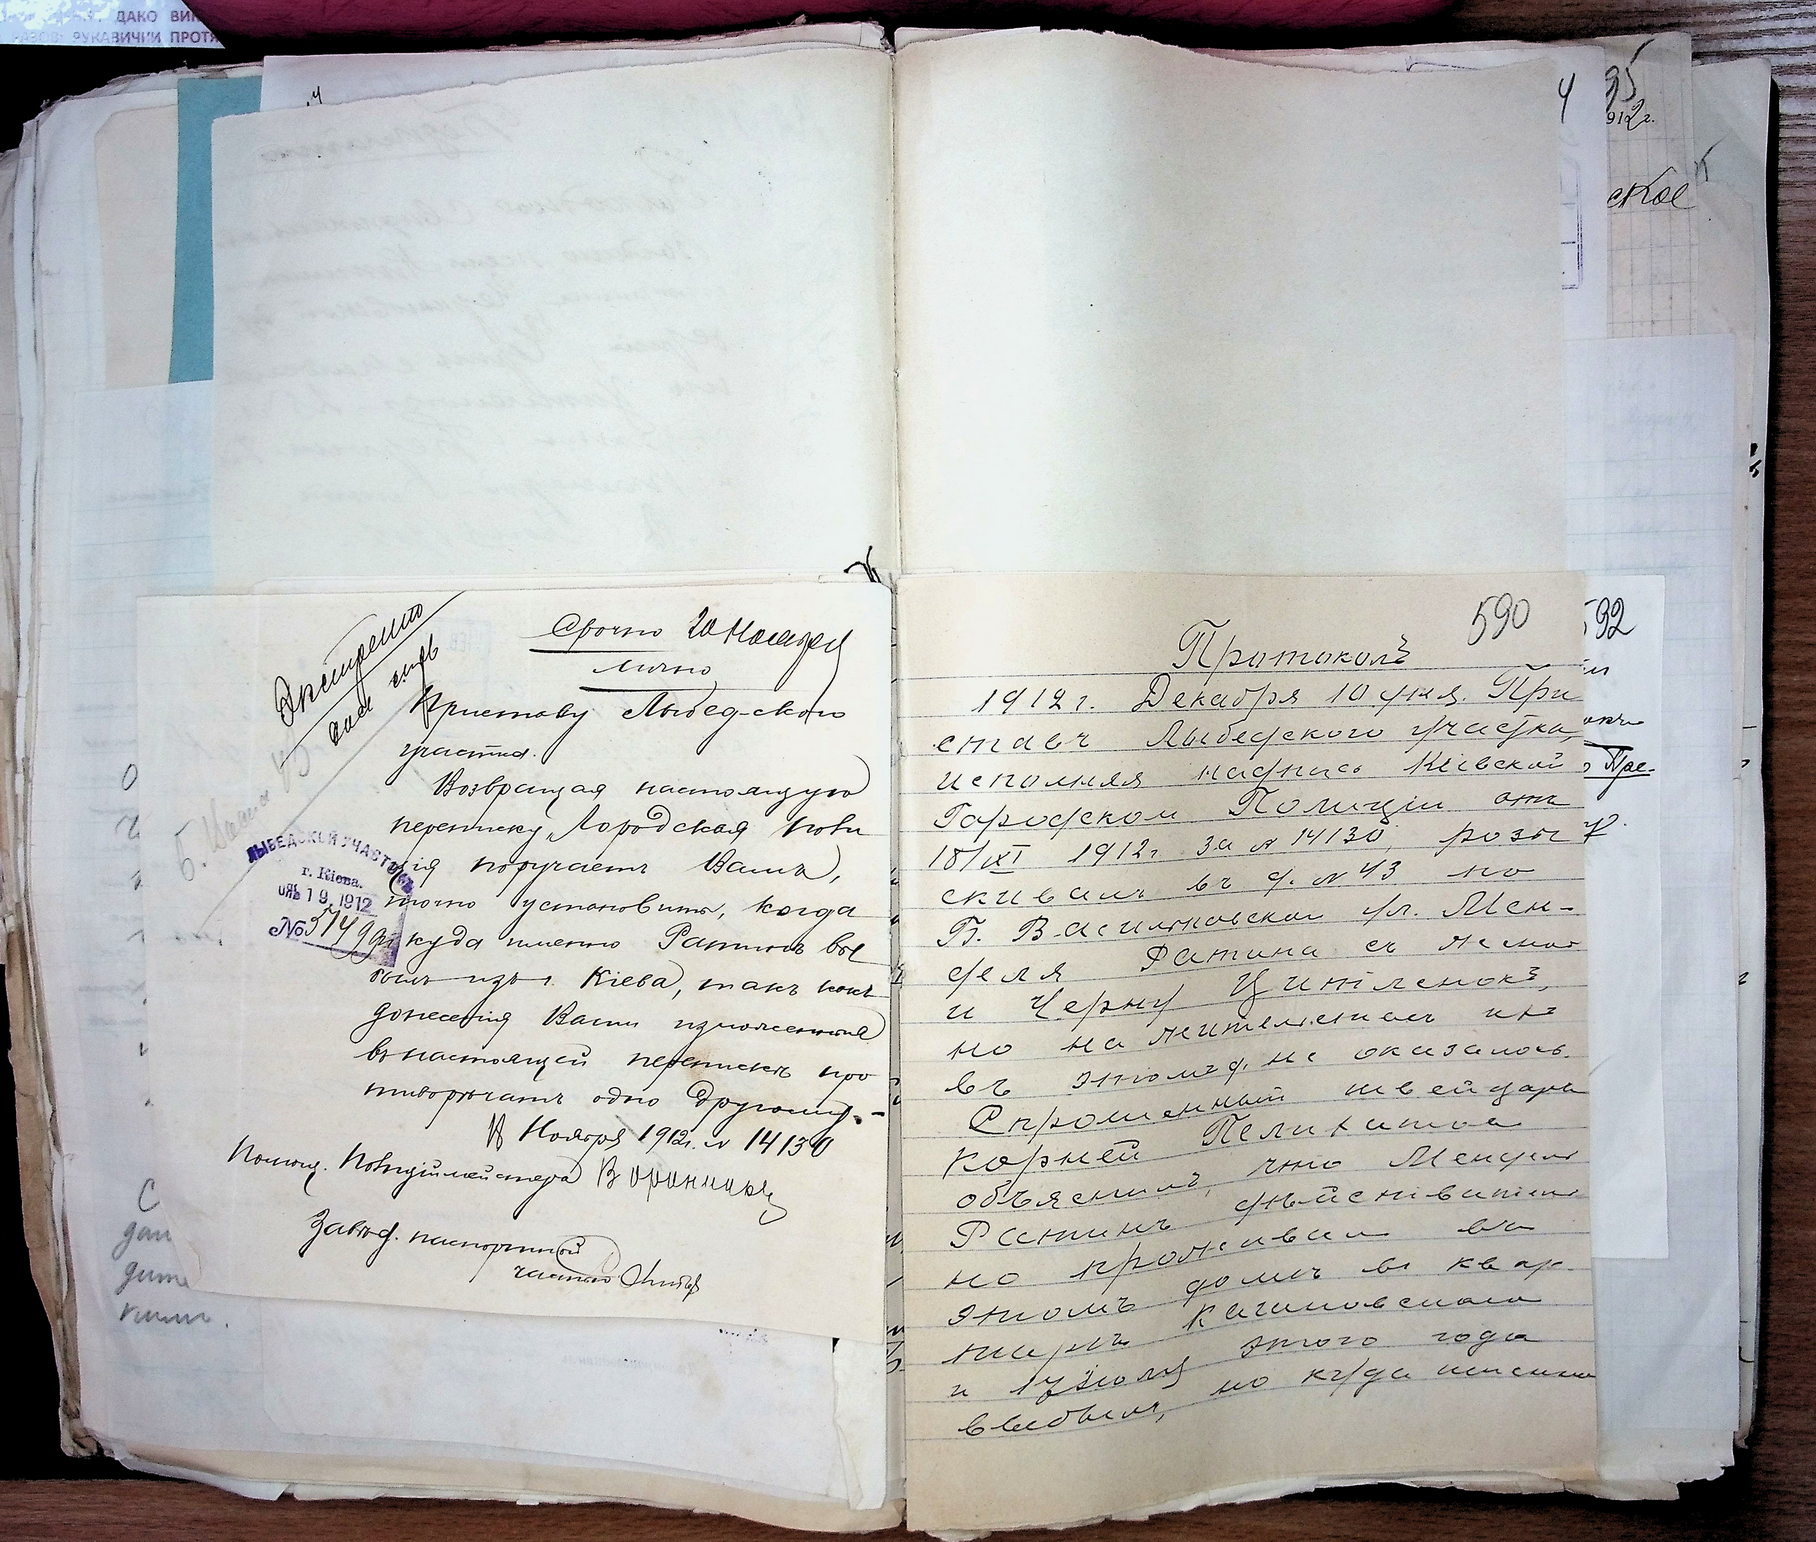 ДАКО
РУКАВИЧКИ
Экстренно
Срочно 20 Ноября
лично
Приставу Лыбедского
участка.
Возвращая настоящую
переписку, Городская Поли
ція поручаетъ Вамъ,
точно установить, когда
и куда именно Ратинъ вы
былъ изъ г. Кіева, такъ какъ
донесенія Ваши изложенные
въ настоящей перепискѣ про
тиворѣчатъ одно другому.-
18 Ноября 1912 г. № 14130
Помощ. Полиціймейстера
Завѣд. паспортной
частью
ЛЫБЕДСКОЙ УЧАСТОКЪ
г. Кіева.
19. 1912
№
590
Протоколъ
1912 г. Декабря 10 дня. При
ставъ Лыбедского участка,
исполняя надпись Кіевской
Городской Полиціи отъ
18/XI 1912 г за № 14130, розы
скивалъ въ д. № 43 по
Б. Васильковской ул. Мен-
деля Ратина съ женой
и Черну Цитленокъ,
но на жительствѣ ихъ
въ этомъ д. не оказалось.
Спрошенный швейцаръ
Корней
объяснилъ, что Мендель
Ратинъ дѣйствитель
но проживалъ въ
этомъ домѣ въ квар
тирѣ
и 17 Іюля этого года
выбылъ, но куда именно
592
95
1912 г.
ское